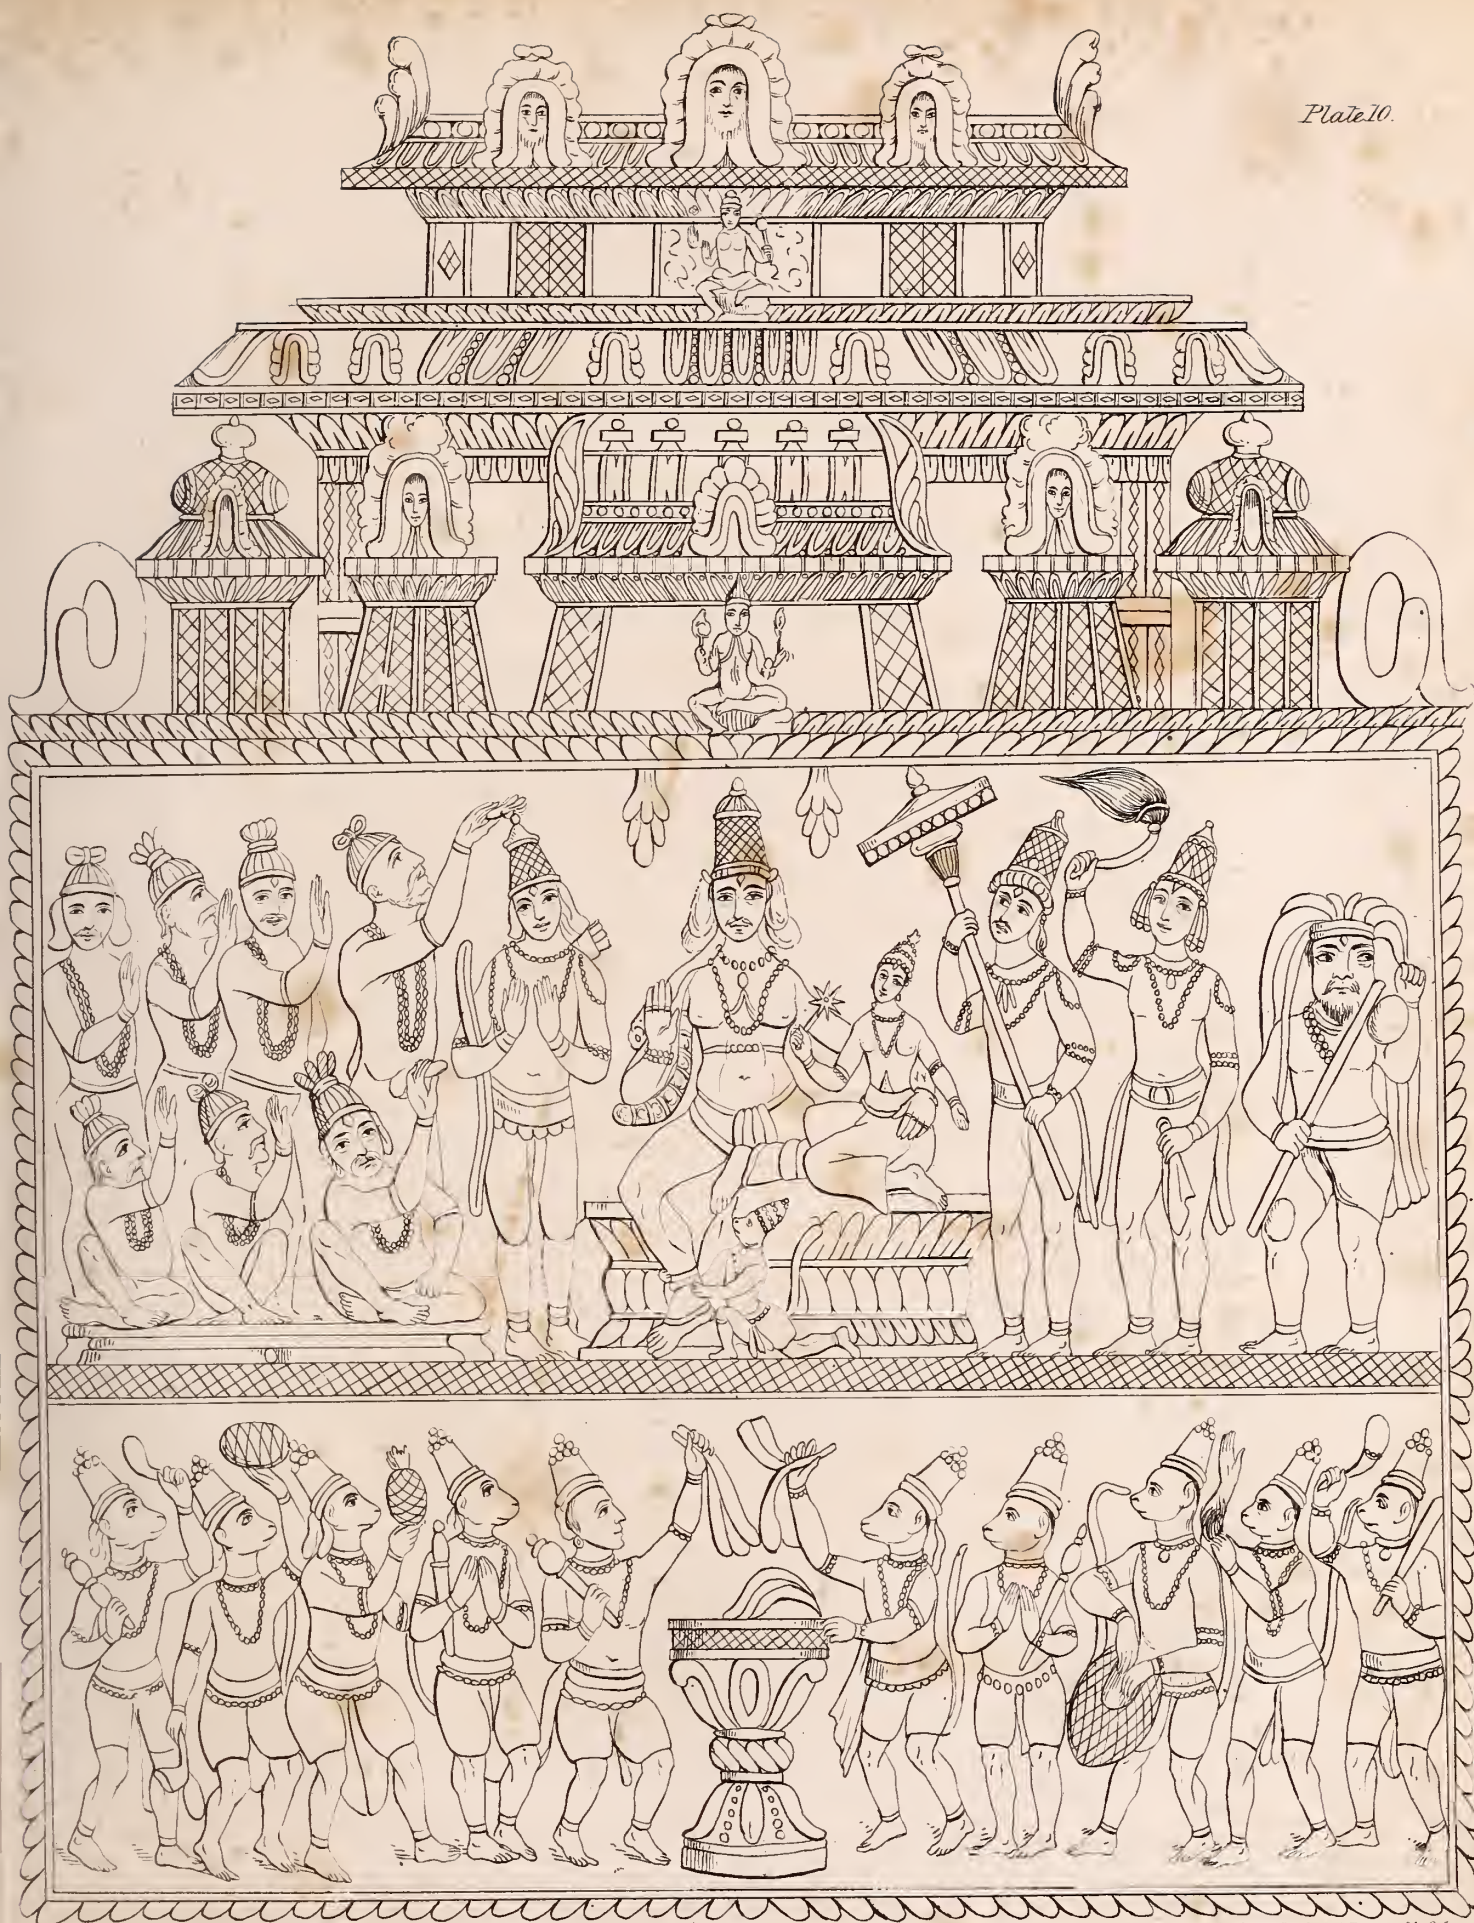 Plate 10.